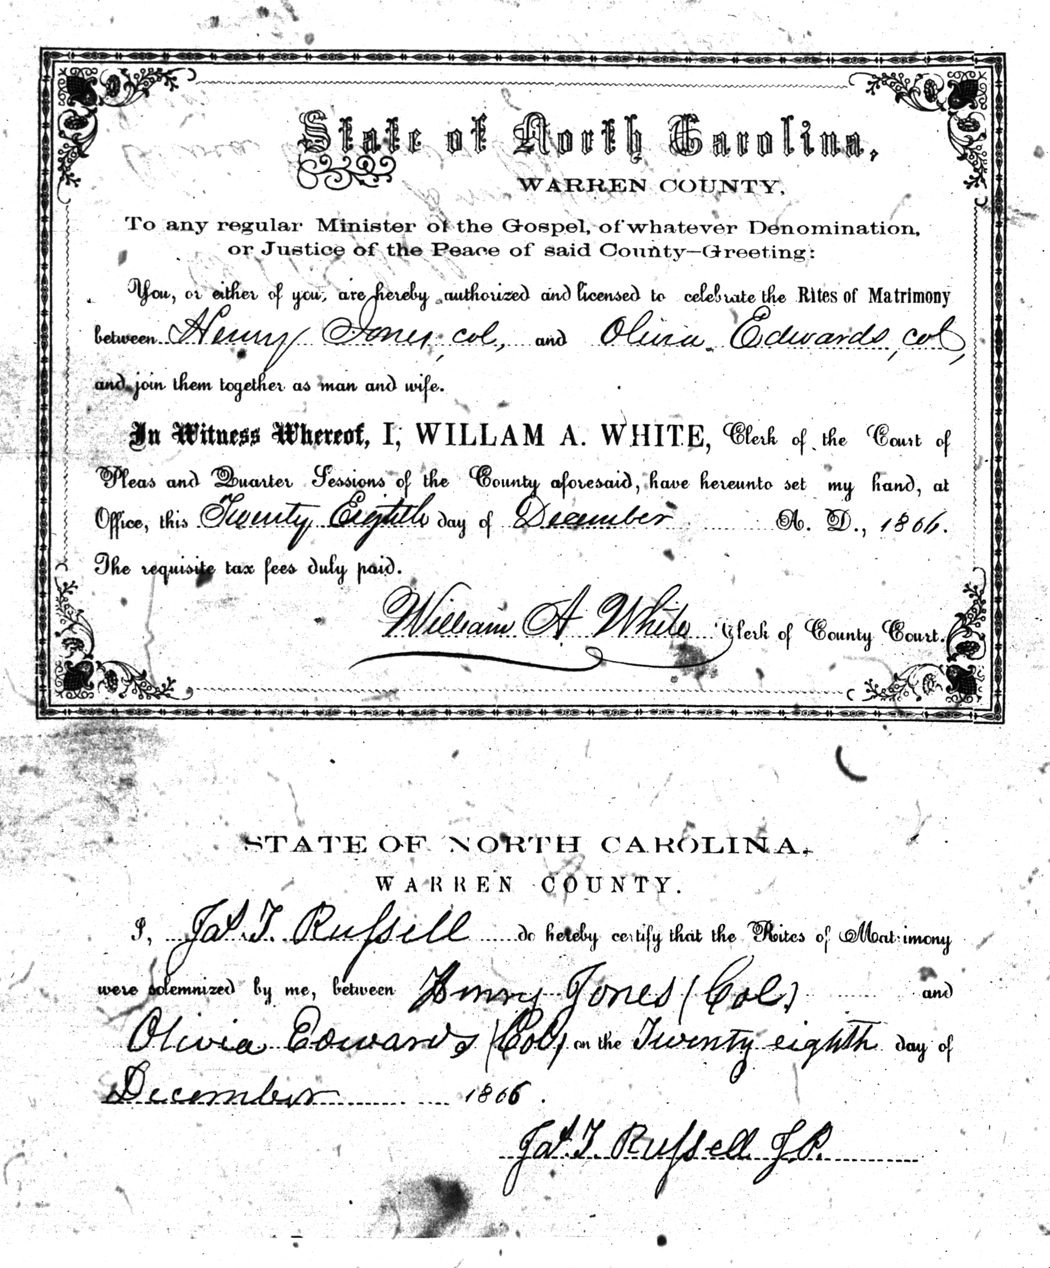 State of North Carolina,
WARREN COUNTY.
To any regular Minister of the Gospel, of whatever Denomination,
or Justice of the Peace of said County—Greeting:
You, or either of you, are hereby authorized and licensed to celebrate the Rites of Matrimony
between Henry Jones, col., and Olivia Edwards, col,
and join them together as man and wife.
In Witness Whereof, I, WILLAM A. WHITE, Clerk of the Court of
Pleas and Quarter Sessions of the County aforesaid, have hereunto set my hand, at
Office, this Twenty Eighth day of December A. D., 1866.
The requisite tax fees duly paid.
William A White Clerk of County Court.
STATE OF NORTH CAROLINA,
WARREN COUNTY.
I, Jas. T. Russell do hereby certify that the Rites of Matrimony
were solemnized by me, between Henry Jones (Col.) and
Olivia Edwards (Col) on the Twenty eighth day of
December 1866.
Jas. T. Russell J.P.